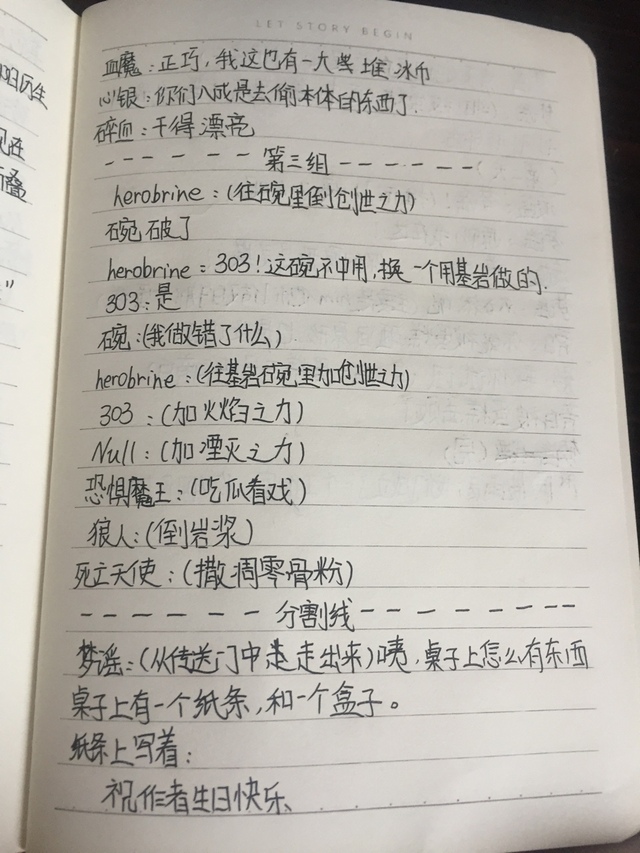 LET STORY BEGIN
血魔：正巧，我这也有一大堆冰巾
心银：你们八成是去偷本体的东西了.
碎血：干得漂亮
------第三组------
herobrine：(往碗里倒创世之力)
碗破了
herobrine：303！这碗不中用，换一个用基岩做的.
303：是
碗：(我做错了什么)
herobrine：(往基岩碗里加创世之力)
303：(加火焰之力)
Null：(加湮灭之力)
恐惧魔王：(吃瓜看戏)
狼人：(倒岩浆)
死立天使：(撒凋零骨粉)
------分割线------
梦谣：(从传送门中走出来)咦，桌子上怎么有东西
桌子上有一个纸条，和一个盒子。
纸条上写着：
祝作者生日快乐